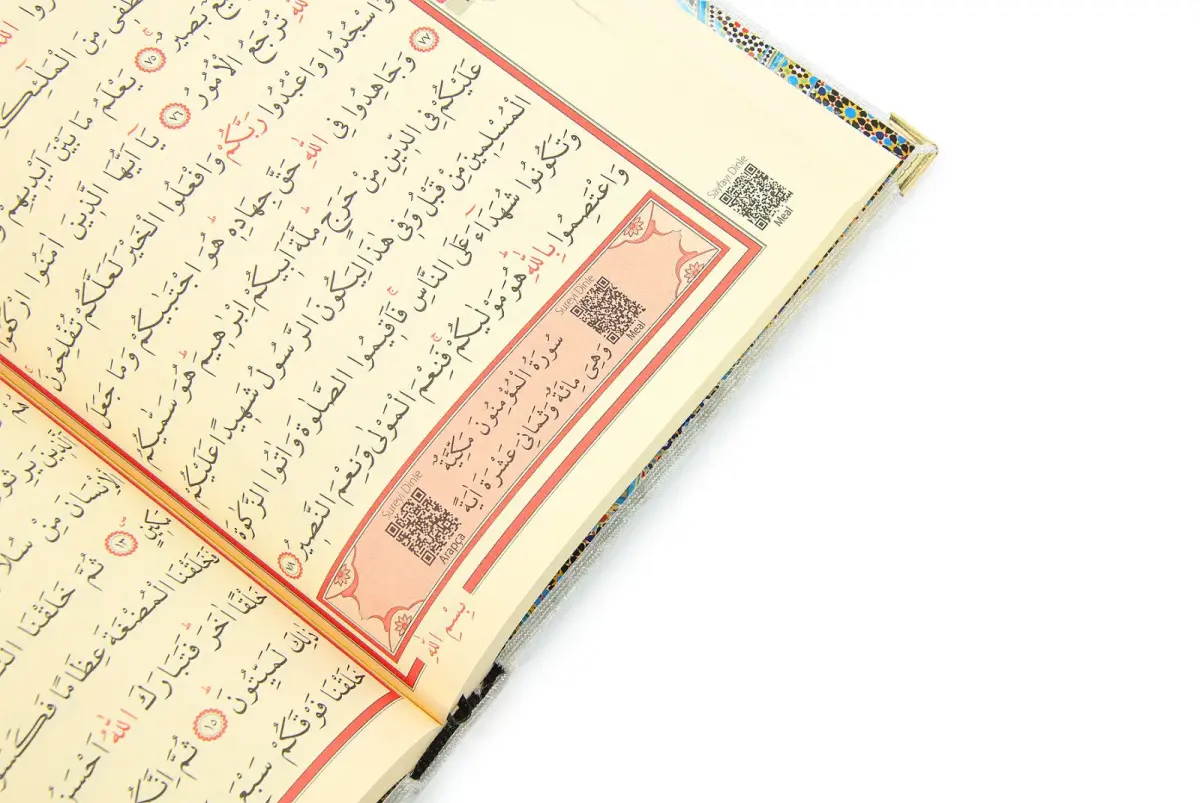 مِنَ الْمَلٰٓئِكَ
بَصِيرٌ ٧٥ يَعْلَمُ مَا بَيْنَ اَيْدِيهِمْ
اللّٰهِ تُرْجَعُ الْاُمُورُ ٧٦ يَٓا اَيُّهَا الَّذِينَ اٰمَنُوا ارْكَعُوا
وَاسْجُدُوا وَاعْبُدُوا رَبَّكُمْ وَافْعَلُوا الْخَيْرَ لَعَلَّكُمْ تُفْلِحُونَ
٧٧ وَجَاهِدُوا فِى اللّٰهِ حَقَّ جِهَادِهٖ هُوَ اجْتَبٰيكُمْ وَمَا جَعَلَ
عَلَيْكُمْ فِى الدِّينِ مِنْ حَرَجٍ مِلَّةَ اَبِيكُمْ اِبْرٰهِيمَ هُوَ سَمّٰيكُمُ
الْمُسْلِمِينَ مِنْ قَبْلُ وَفِى هٰذَا لِيَكُونَ الرَّسُولُ شَهِيدًا عَلَيْكُمْ
وَتَكُونُوا شُهَدَٓاءَ عَلَى النَّاسِ فَاَقِيمُوا الصَّلٰوةَ وَاٰتُوا الزَّكٰوةَ
وَاعْتَصِمُوا بِاللّٰهِ هُوَ مَوْلٰيكُمْ فَنِعْمَ الْمَوْلٰى وَنِعْمَ النَّصِيرُ ٧٨
Sayfayı Dinle
Meal
Sureyi Dinle
Meal
سُورَةُ الْمُؤْمِنُونَ مَكِّيَّةٌ
وَهِىَ مِائَةٌ وَثَمَانِىَ عَشْرَةَ اٰيَةً
Sureyi Dinle
Arapça
بِسْمِ اللّٰهِ
الَّذِينَ يَرِثُو
الْاِنْسَانَ مِنْ سُلَا
مَكِينٍ ١٣ ثُمَّ خَلَقْنَا
فَخَلَقْنَا الْمُضْغَةَ عِظَامًا فَكَسَوْ
خَلْقًا اٰخَرَ فَتَبَارَكَ اللّٰهُ اَحْسَنُ
ذٰلِكَ لَمَيِّتُونَ ١٥ ثُمَّ اِنَّكُمْ
خَلَقْنَا فَوْقَكُمْ سَبْعَ